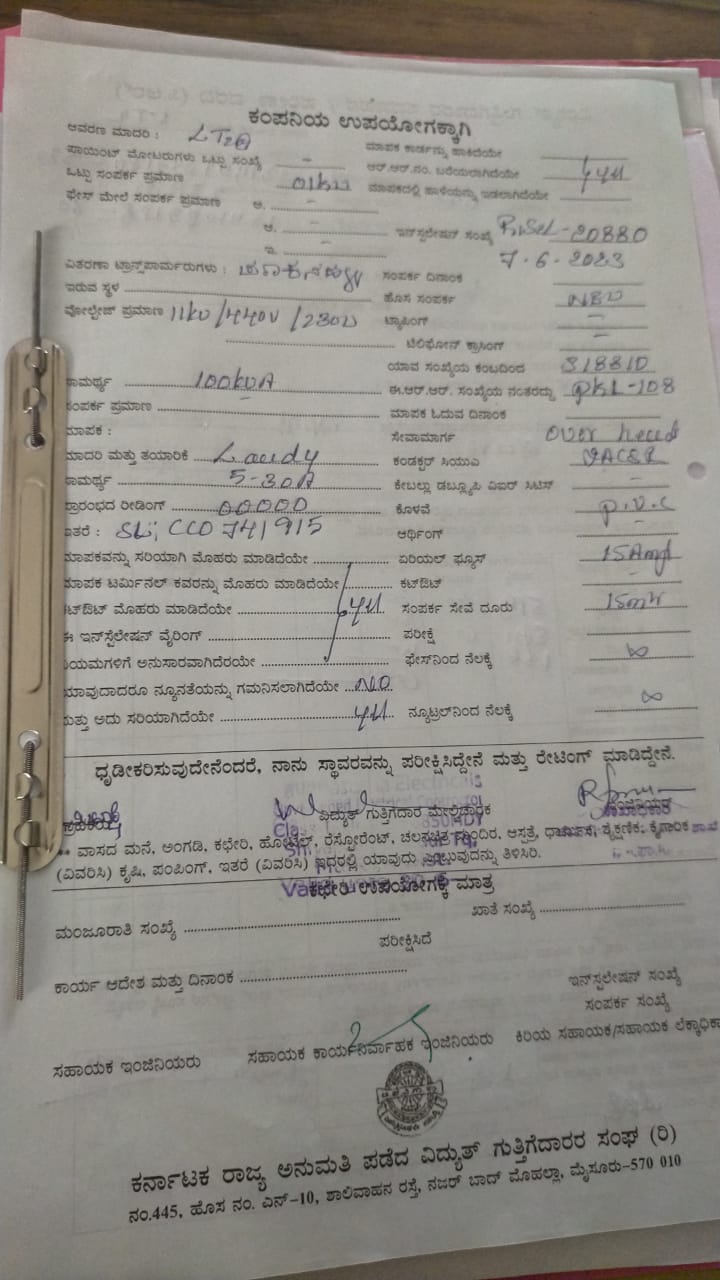 ಕಂಪನಿಯ ಉಪಯೋಗಕ್ಕಾಗಿ
ಆವರಣ ಮಾದರಿ : LT2A
ಮಾಪಕ ಕಾರ್ಡನ್ನು ಹಾಕಿದೆಯೇ
ಪಾಯಿಂಟ್ ಮೋಟರುಗಳು ಒಟ್ಟು ಸಂಖ್ಯೆ –
ಆರ್.ಆರ್.ನಂ. ಬರೆಯಲಾಗಿದೆಯೇ
ಒಟ್ಟು ಸಂಪರ್ಕ ಪ್ರಮಾಣ 01KW
ಮಾಪಕದಲ್ಲಿ ಹಾಳೆಯನ್ನು ಇಡಲಾಗಿದೆಯೇ
ಫೇಸ್ ಮೇಲೆ ಸಂಪರ್ಕ ಪ್ರಮಾಣ ಅ. –
ಆ. –
ಇನ್‌ಸ್ಟಲೇಷನ್ ಸಂಖ್ಯೆ 20880
ಇ. –
7-6-2023
ವಿತರಣಾ ಟ್ರಾನ್ಸ್‌ಫಾರ್ಮರುಗಳು :
ಸಂಪರ್ಕ ದಿನಾಂಕ
ಇರುವ ಸ್ಥಳ
ಹೊಸ ಸಂಪರ್ಕ NEW
ವೋಲ್ಟೇಜ್ ಪ್ರಮಾಣ 11KV/440V/230V
ಟ್ಯಾಪಿಂಗ್ –
ಟೆಲಿಫೋನ್ ಕ್ರಾಸಿಂಗ್ –
ಯಾವ ಸಂಖ್ಯೆಯ ಕಂಬದಿಂದ 318810
ಸಾಮರ್ಥ್ಯ 100KVA
ಈ.ಆರ್.ಆರ್. ಸಂಖ್ಯೆಯ ನಂತರದ್ದು PKL-108
ಸಂಪರ್ಕ ಪ್ರಮಾಣ –
ಮಾಪಕ ಓದುವ ದಿನಾಂಕ
ಮಾಪಕ :
ಸೇವಾಮಾರ್ಗ over head
ಮಾದರಿ ಮತ್ತು ತಯಾರಿಕೆ
ಕಂಡಕ್ಟರ್ ಸಿಯುಎ
ಸಾಮರ್ಥ್ಯ 5-30A
ಕೇಬಲ್ಲು ಡಬ್ಲ್ಯೂಪಿ ವಿಐಆರ್ ಸಿಟಿಸ್ –
ಪ್ರಾರಂಭದ ರೀಡಿಂಗ್ 00000
ಕೊಳವೆ P.V.C
ಇತರೆ : SL; CCO 741915
ಆರ್ಥಿಂಗ್ –
ಮಾಪಕವನ್ನು ಸರಿಯಾಗಿ ಮೊಹರು ಮಾಡಿದೆಯೇ
ಏರಿಯಲ್ ಫ್ಯೂಸ್ 15Amp
ಮಾಪಕ ಟರ್ಮಿನಲ್ ಕವರನ್ನು ಮೊಹರು ಮಾಡಿದೆಯೇ
ಕಟ್‌ಔಟ್ –
ಕಟ್‌ಔಟ್ ಮೊಹರು ಮಾಡಿದೆಯೇ
ಸಂಪರ್ಕ ಸೇವೆ ದೂರು
ಈ ಇನ್‌ಸ್ಟಲೇಷನ್ ವೈರಿಂಗ್
ಪರೀಕ್ಷೆ
ನಿಯಮಗಳಿಗೆ ಅನುಸಾರವಾಗಿದೆರೆಯೇ
ಫೇಸ್‌ನಿಂದ ನೆಲಕ್ಕೆ ∞
ಯಾವುದಾದರೂ ನ್ಯೂನತೆಯನ್ನು ಗಮನಿಸಲಾಗಿದೆಯೇ NO
ಮತ್ತು ಅದು ಸರಿಯಾಗಿದೆಯೇ
ನ್ಯೂಟ್ರಲ್‌ನಿಂದ ನೆಲಕ್ಕೆ ∞
ಧೃಡೀಕರಿಸುವುದೇನೆಂದರೆ, ನಾನು ಸ್ಥಾವರವನ್ನು ಪರೀಕ್ಷಿಸಿದ್ದೇನೆ ಮತ್ತು ರೇಟಿಂಗ್ ಮಾಡಿದ್ದೇನೆ.
ವಿದ್ಯುತ್ ಗುತ್ತಿಗೆದಾರ ಮೇಲ್ವಿಚಾರಕ
** ವಾಸದ ಮನೆ, ಅಂಗಡಿ, ಕಛೇರಿ, ಹೋಟೆಲ್, ರೆಸ್ಟೋರೆಂಟ್, ಚಲನಚಿತ್ರ ಮಂದಿರ, ಆಸ್ಪತ್ರೆ, ಧಾರ್ಮಿಕ, ಶೈಕ್ಷಣಿಕ, ಕೈಗಾರಿಕ
(ವಿವರಿಸಿ) ಕೃಷಿ, ಪಂಪಿಂಗ್, ಇತರೆ (ವಿವರಿಸಿ) ಇದರಲ್ಲಿ ಯಾವುದು ಎಂಬುವುದನ್ನು ತಿಳಿಸಿರಿ.
ಕಛೇರಿ ಉಪಯೋಗಕ್ಕೆ ಮಾತ್ರ
ಮಂಜೂರಾತಿ ಸಂಖ್ಯೆ
ಖಾತೆ ಸಂಖ್ಯೆ
ಪರೀಕ್ಷಿಸಿದೆ
ಕಾರ್ಯ ಆದೇಶ ಮತ್ತು ದಿನಾಂಕ
ಇನ್‌ಸ್ಟಲೇಷನ್ ಸಂಖ್ಯೆ
ಸಂಪರ್ಕ ಸಂಖ್ಯೆ
ಸಹಾಯಕ ಇಂಜಿನಿಯರು
ಸಹಾಯಕ ಕಾರ್ಯನಿರ್ವಾಹಕ ಇಂಜಿನಿಯರು
ಕಿರಿಯ ಸಹಾಯಕ/ಸಹಾಯಕ ಲೆಕ್ಕಾಧಿಕಾ
ಕರ್ನಾಟಕ ರಾಜ್ಯ ಅನುಮತಿ ಪಡೆದ ವಿದ್ಯುತ್ ಗುತ್ತಿಗೆದಾರರ ಸಂಘ (ರಿ)
ನಂ.445, ಹೊಸ ನಂ. ಎನ್-10, ಶಾಲಿವಾಹನ ರಸ್ತೆ, ನಜರ್ ಬಾದ್ ಮೊಹಲ್ಲಾ, ಮೈಸೂರು-570 010